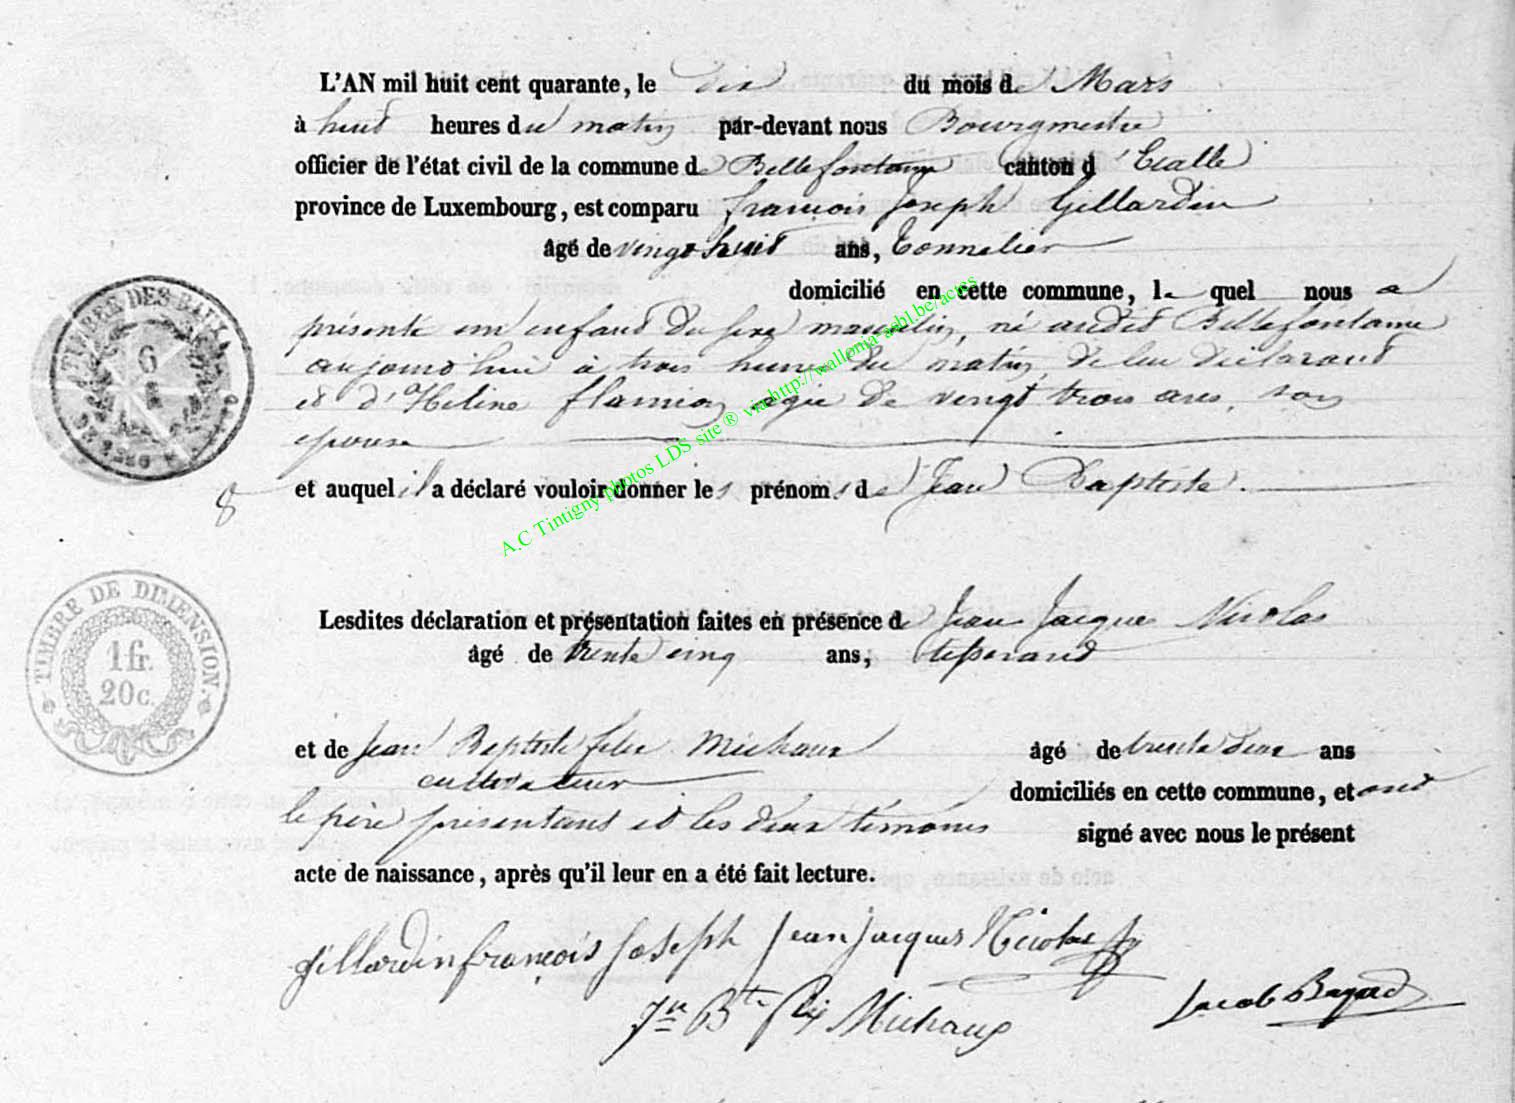 L'AN mil huit cent quarante, le dix du mois de Mars
à huit heures du matin par-devant nous Bourgmestre
officier de l'état civil de la commune de Bellefontaine canton d'Etalle
province de Luxembourg, est comparu françois Joseph Gillardin
âgé de vingt huit ans, Tonnelier
domicilié en cette commune, le quel nous a
présenté un enfant du sexe masculin, né audit Bellefontaine
aujourd'hui à trois heures du matin, de lui déclarant
et d'Hélène flamion agée de vingt trois ans, son
épouse
et auquel il a déclaré vouloir donner les prénoms de Jean Baptiste.
8
Lesdites déclaration et présentation faites en présence de Jean Jacques Nicolas
âgé de trente cinq ans, tisserand
et de Jean Baptiste felix Michaux âgé de trente deux ans
cultivateur domiciliés en cette commune, et ont
le père présentant et les deux témoins signé avec nous le présent
acte de naissance, après qu'il leur en a été fait lecture.
gillardin françois Joseph Jean Jacques Nicolas
Jn Bte Flix Michaux Jacob
TIMBRE DES
6
TIMBRE DE DIMENSION.
1 fr.
20 c.
A.C Tintigny photos LDS site ® via http://wallonia-asbl.be/actes